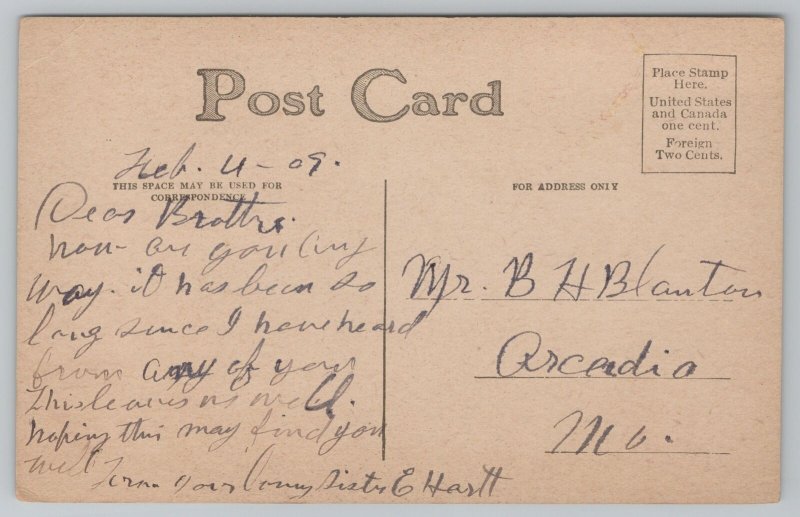 Post Card
Place Stamp
Here.
United States
and Canada
one cent.
Foreign
Two Cents.
Feb. 4-09.
THIS SPACE MAY BE USED FOR
CORRESPONDENCE
FOR ADDRESS ONLY
Dear Brother.
how are you any
way. it has been so
long since I have heard
from any of you
This leaves us well.
hoping this may find you
well
from your loving sister E Hartt
Mr. B H Blanton
Arcadia
Mo.